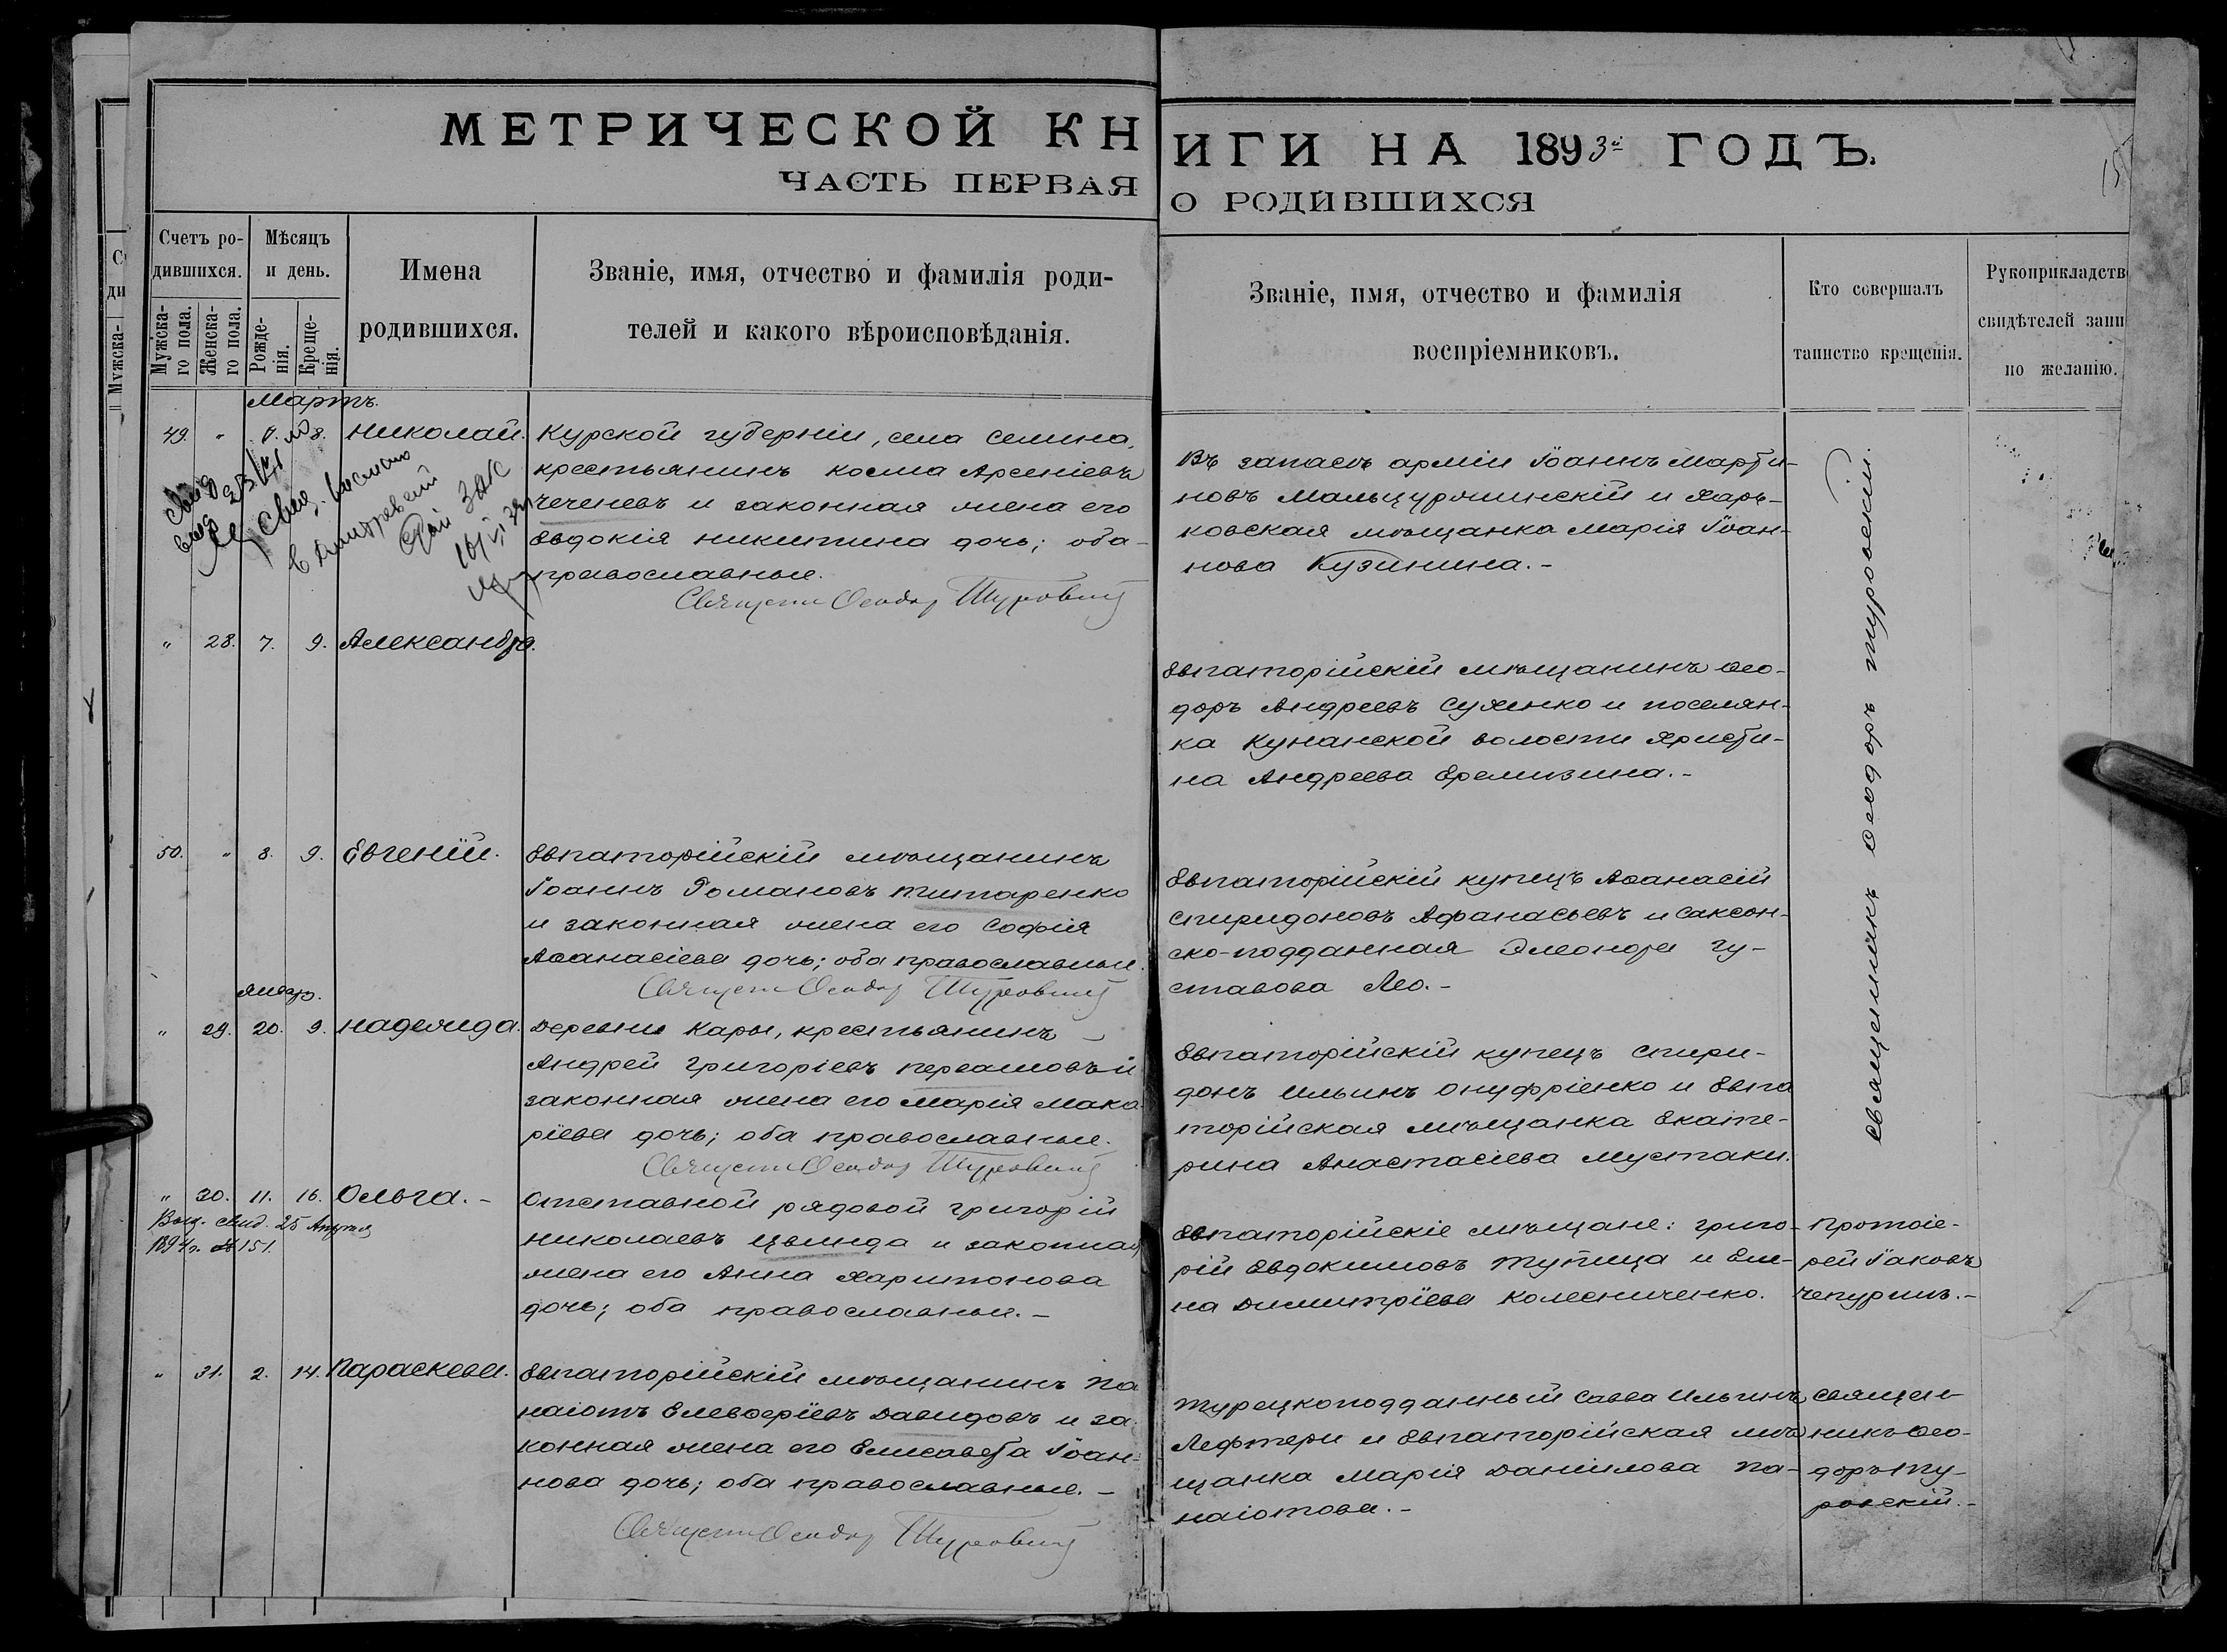 МЕТРИЧЕСКОЙ КНИГИ НА 1893й ГОДЪ.
ЧАСТЬ ПЕРВАЯ О РОДИВШИХСЯ
Счетъ ро-
дившихся.
Мужска-
го пола.
Женска-
го пола.
Мѣсяцъ
и день.
Рожде-
нія.
Креще-
нія.
Имена
родившихся.
Званіе, имя, отчество и фамилія роди-
телей и какого вѣроисповѣданія.
Званіе, имя, отчество и фамилія
воспріемниковъ.
Кто совершалъ
таинство крещенія.
Рукоприкладств
свидѣтелей запи
по желанію.
Мартъ.
49. " 8. Николай.
Курской губерніи, села Семина,
крестьянинъ Косма Арсеніевъ
Чеченевъ и законная жена его
Евдокія Никитина дочь; оба
православные.
Священ Ѳеодор Туровскій
Въ запасѣ арміи Іоаннъ Марти-
новъ и Харь-
ковская мѣщанка Марія Іоан-
нова Кузинина.-
" 28. 7. 9. Александра.
Евпаторійскій мѣщанинъ Ѳео-
доръ Андреевъ Сухенко и поселян-
ка Кунанской волости Христи-
на Андреева Еремизина.-
50. " 8. 9. Евгеній.
Евпаторійскій мѣщанинъ
Іоаннъ Романовъ Титаренко
и законная жена его Софія
Аѳанасіева дочь; оба православные.
Священ Ѳеодор Туровскій
Евпаторійскій купецъ Аѳанасій
Спиридоновъ Афанасьевъ и саксон-
ско-подданная Элеонора Гу-
ставова Лео.-
Январ.
" 29. 20. 9. Надежда.
Деревни Кары, крестьянинъ
Андрей Григоріевъ и
законная жена его Марія Мака
ріева дочь; оба православные.
Священ Ѳеодор Туровскій
Евпаторійскій купецъ Спири-
донъ Ильинъ Онуфріенко и Евпа
торійская мѣщанка Екате-
рина Анастасіева Мустаки.
священникъ Ѳеодоръ Туровскій.
" 30. 11. 16. Ольга.-
Выд. свид. 25 Августа
1894г. № 151.
Отставной рядовой Григорій
Николаевъ Цвинда и законная
жена его Анна Харитонова
дочь; оба православные.-
Евпаторійскіе мѣщане: Григо-
рій Евдокимовъ Тупица и Еле-
на Димитріева Колесниченко.
Протоіе-
рей Іаковъ
Чепуринъ.-
" 31. 2. 14. Параскева.
Евпаторійскій мѣщанинъ Па
наіотъ Елевѳеріевъ Давидовъ и за
конная жена его Елисавета Іоан-
нова дочь; оба православные.-
Священ Ѳеодор Туровскій
Турецкоподданный Савва Ильинъ
Лефтери и Евпаторійская мѣ
щанка Марія Даніилова Па-
наіотова.-
Священ
никъ Ѳео-
доръ Ту-
ровскій.-